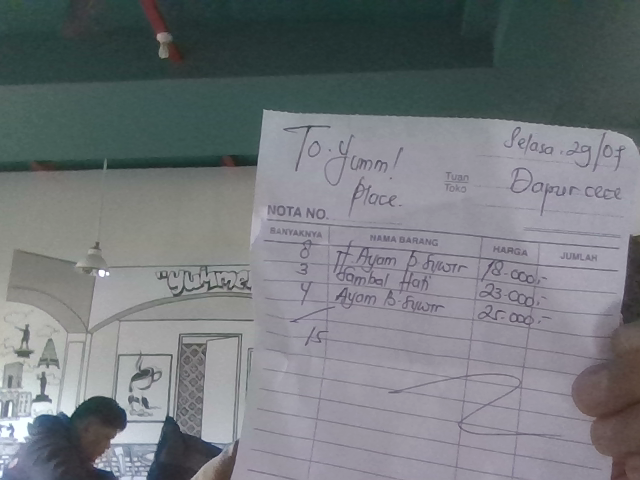 Selasa. 29/07
To. Yumm!
Place.
Tuan
Toko
Dapur cece
NOTA NO.
BANYAKNYA NAMA BARANG HARGA JUMLAH
8 Ayam 18.000,-
3 Sambal Hati 23.000,-
4 Ayam B. 25.000,-
15
"YUMME